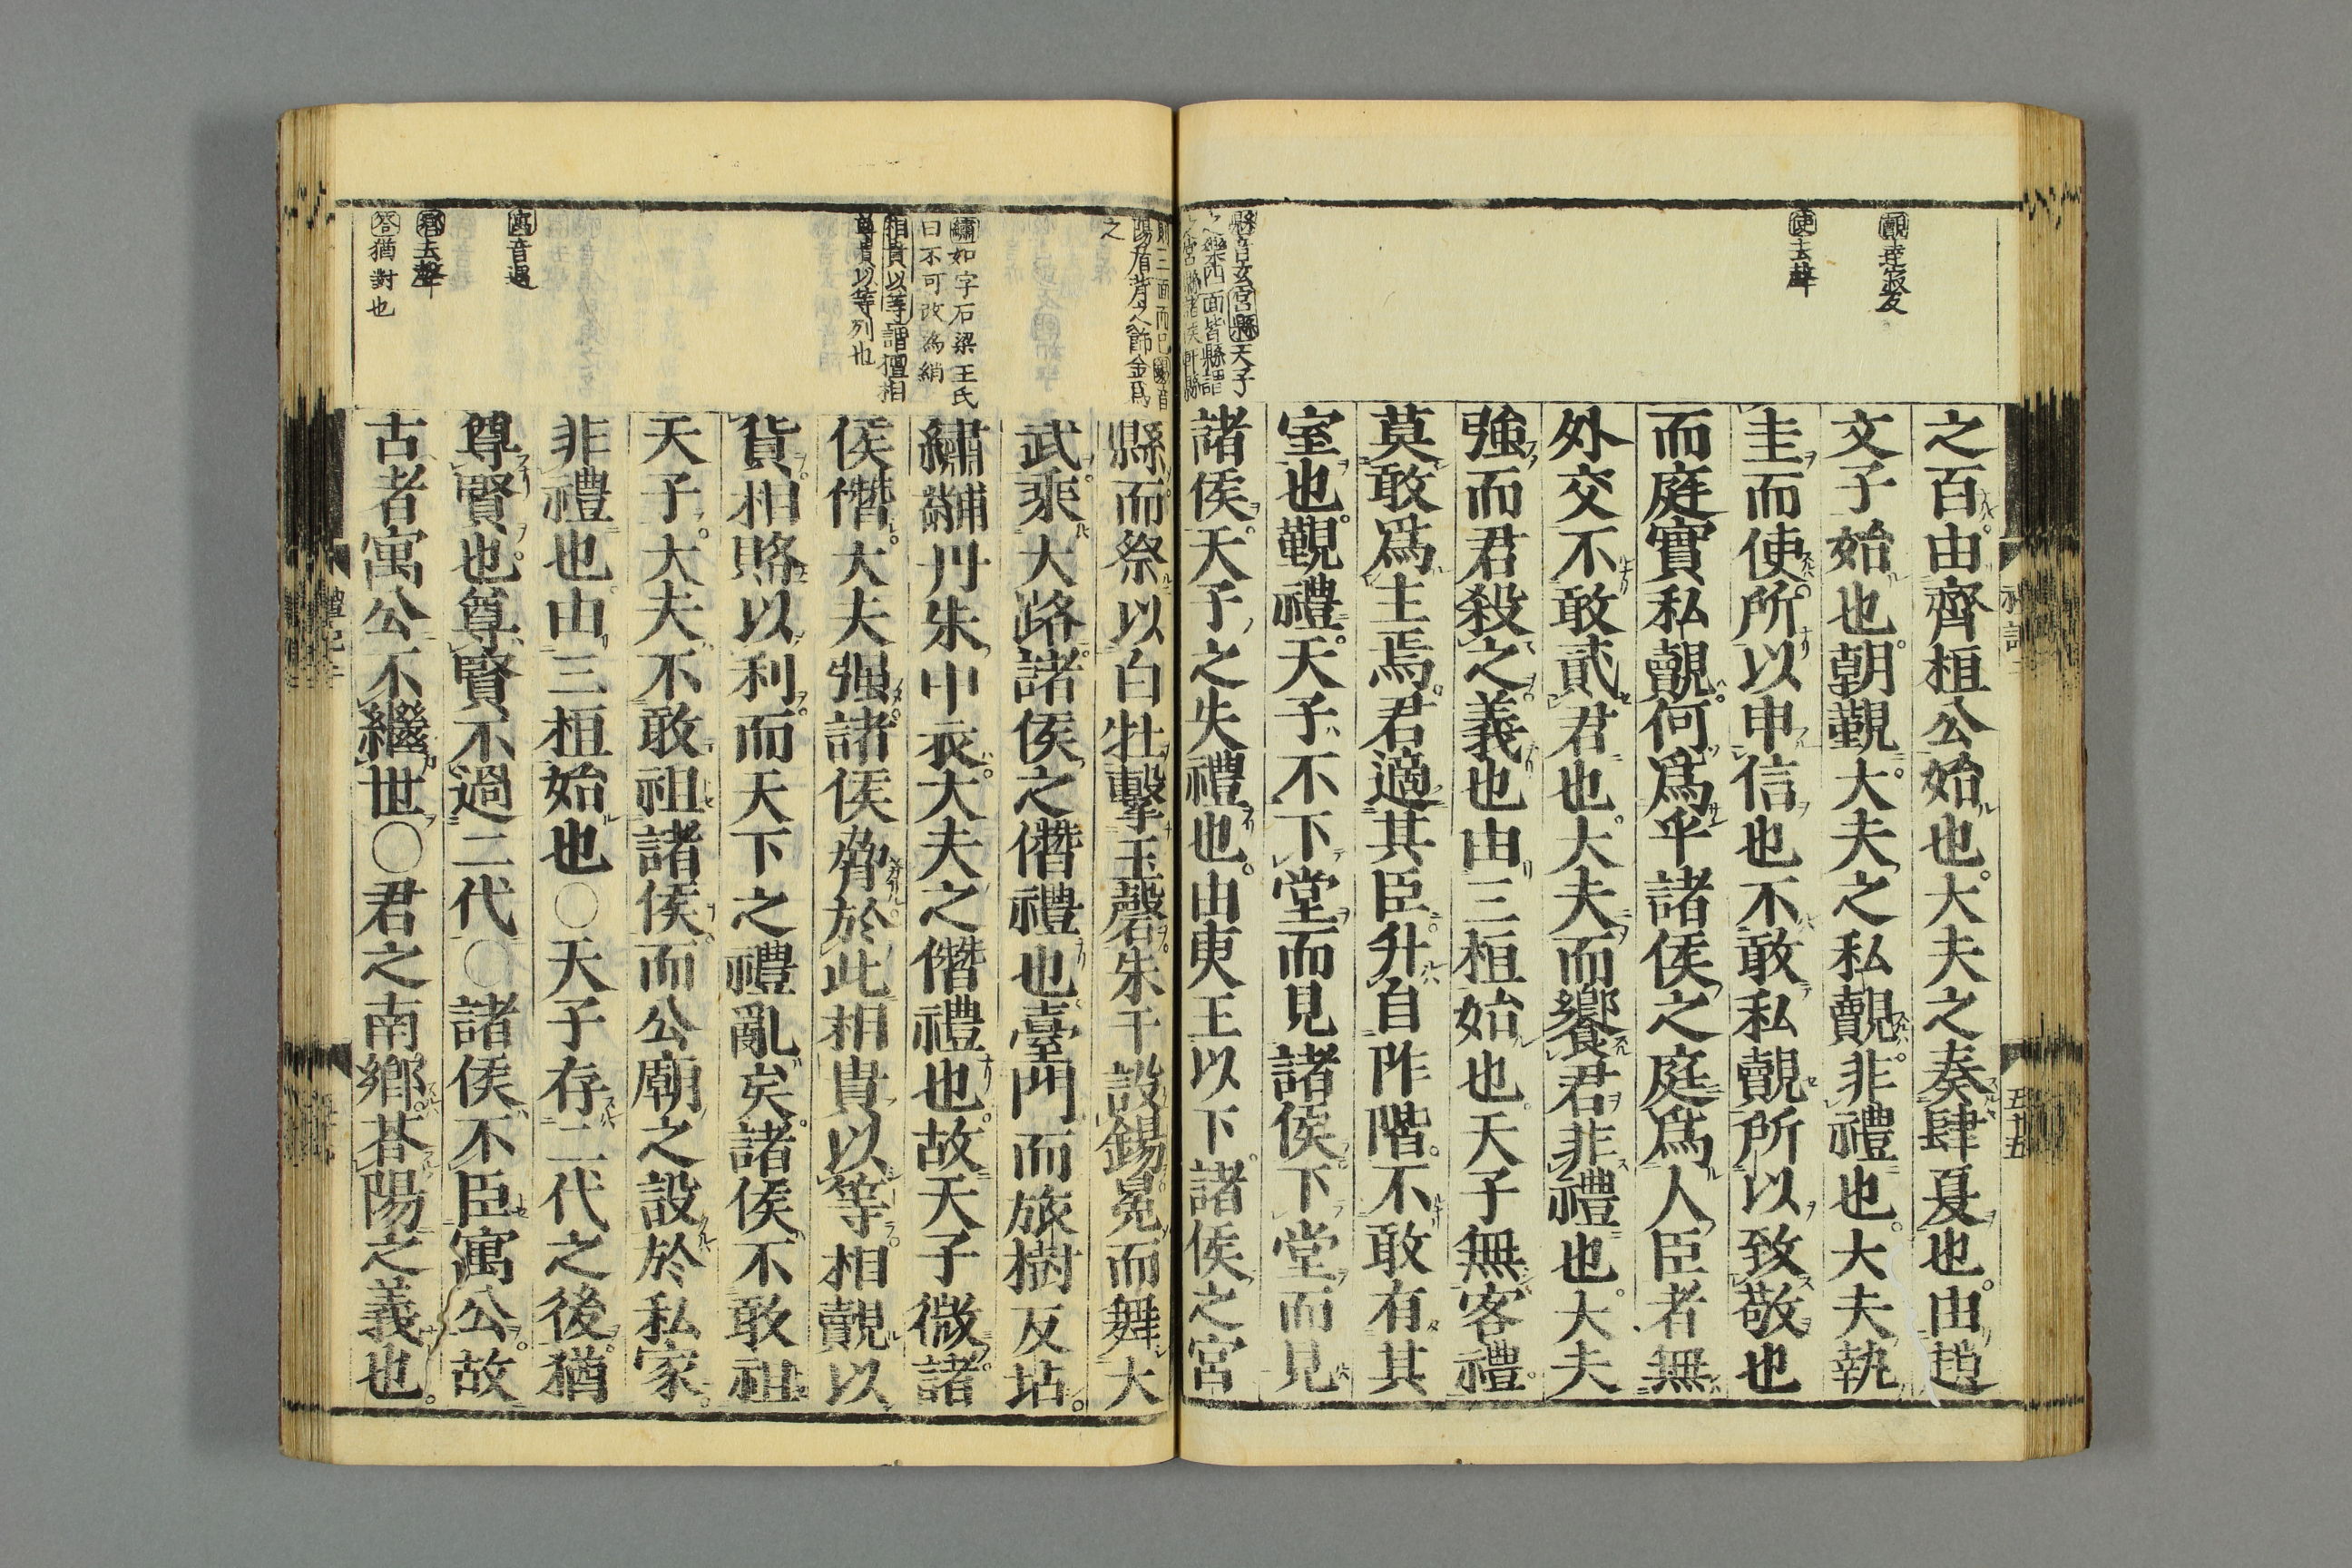 覿徒寂反
使去聲
縣音玄宮縣天子
之樂四面皆縣謂
之宮縣諸侯軒縣
之百由齊桓公始也大夫之奏肆夏也由趙
文子始也朝覲大夫之私覿非禮也大夫執
圭而使所以申信也不敢私覿所以致敬也
而庭實私覿何爲乎諸侯之庭爲人臣者無
外交不敢貳君也大夫而饗君非禮也大夫
強而君殺之義也由三桓始也天子無客禮
莫敢爲主焉君適其臣升自阼階不敢有其
室也覲禮天子不下堂而見諸侯下堂而見
諸侯天子之失禮也由夷王以下諸侯之宮
禮記
五十五
則三面而已錫音
陽盾背之飾金爲
之
繡如字石梁王氏
曰不可改爲綃
相貴以等謂擅相
尊貴以等列也
寓音遇
鄉去聲
答猶對也
縣而祭以白牡擊玉磬朱干設錫冕而舞大
武乘大路諸侯之僭禮也臺門而旅樹反坫
繡黼丹朱中衣大夫之僭禮也故天子微諸
侯僭大夫强諸侯脅於此相貴以等相覿以
貨相賂以利而天下之禮亂矣諸侯不敢祖
天子大夫不敢祖諸侯而公廟之設於私家
非禮也由三桓始也○天子存二代之後猶
尊賢也尊賢不過二代○諸侯不臣寓公故
古者寓公不繼世○君之南鄉荅陽之義也